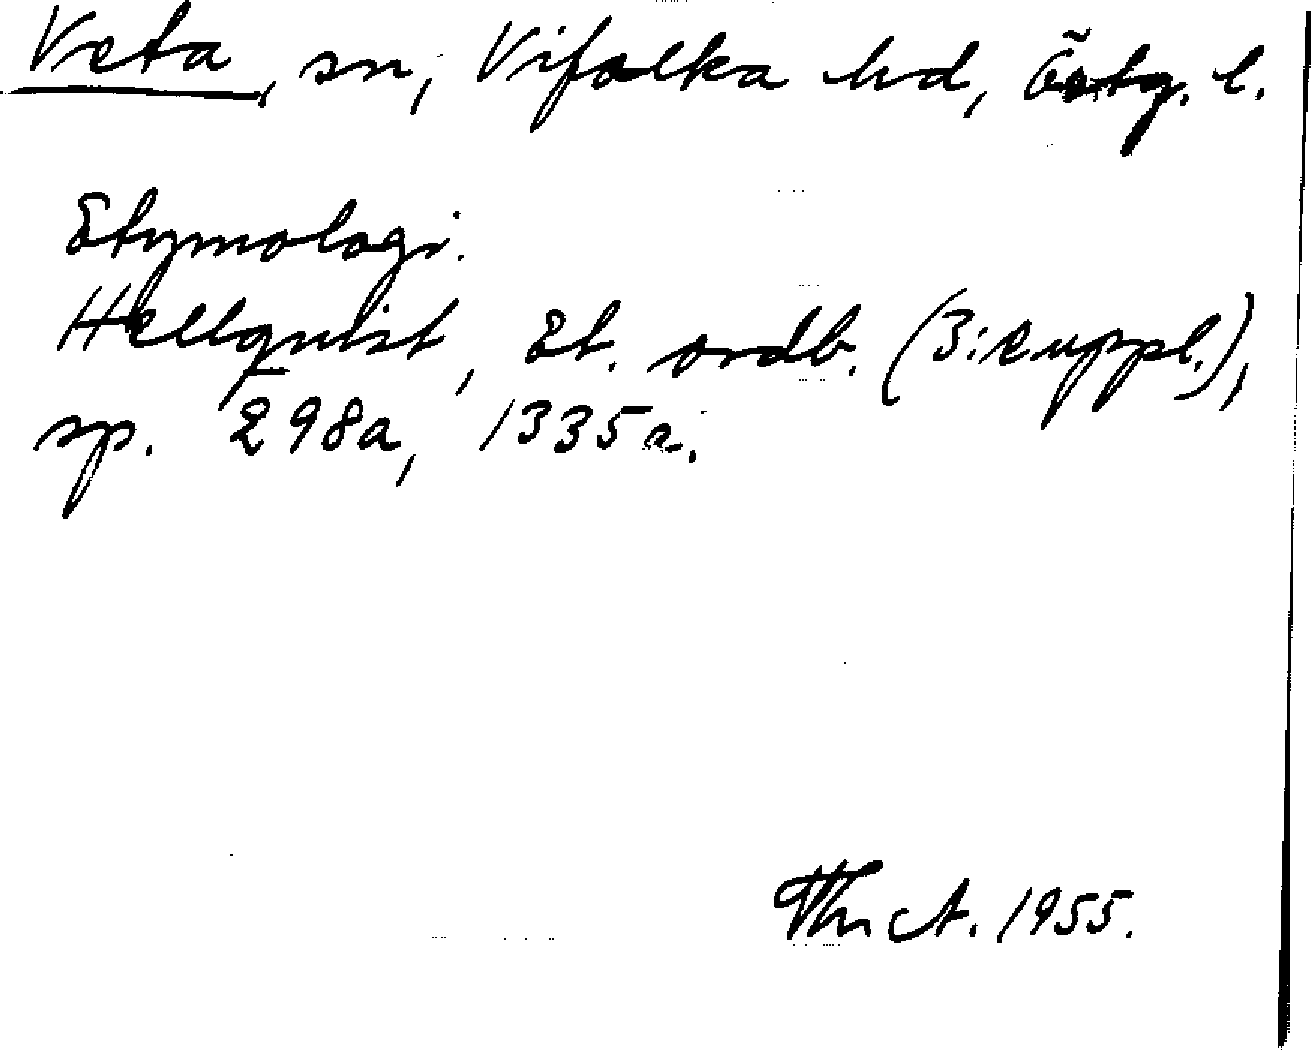 Veta, sn, Vifolka hd, Östg. l.
Etymologi.
Hellqvist, Et. ordb. (3:e uppl.),
sp. 298a, 1335a.
Thr A. 1955.